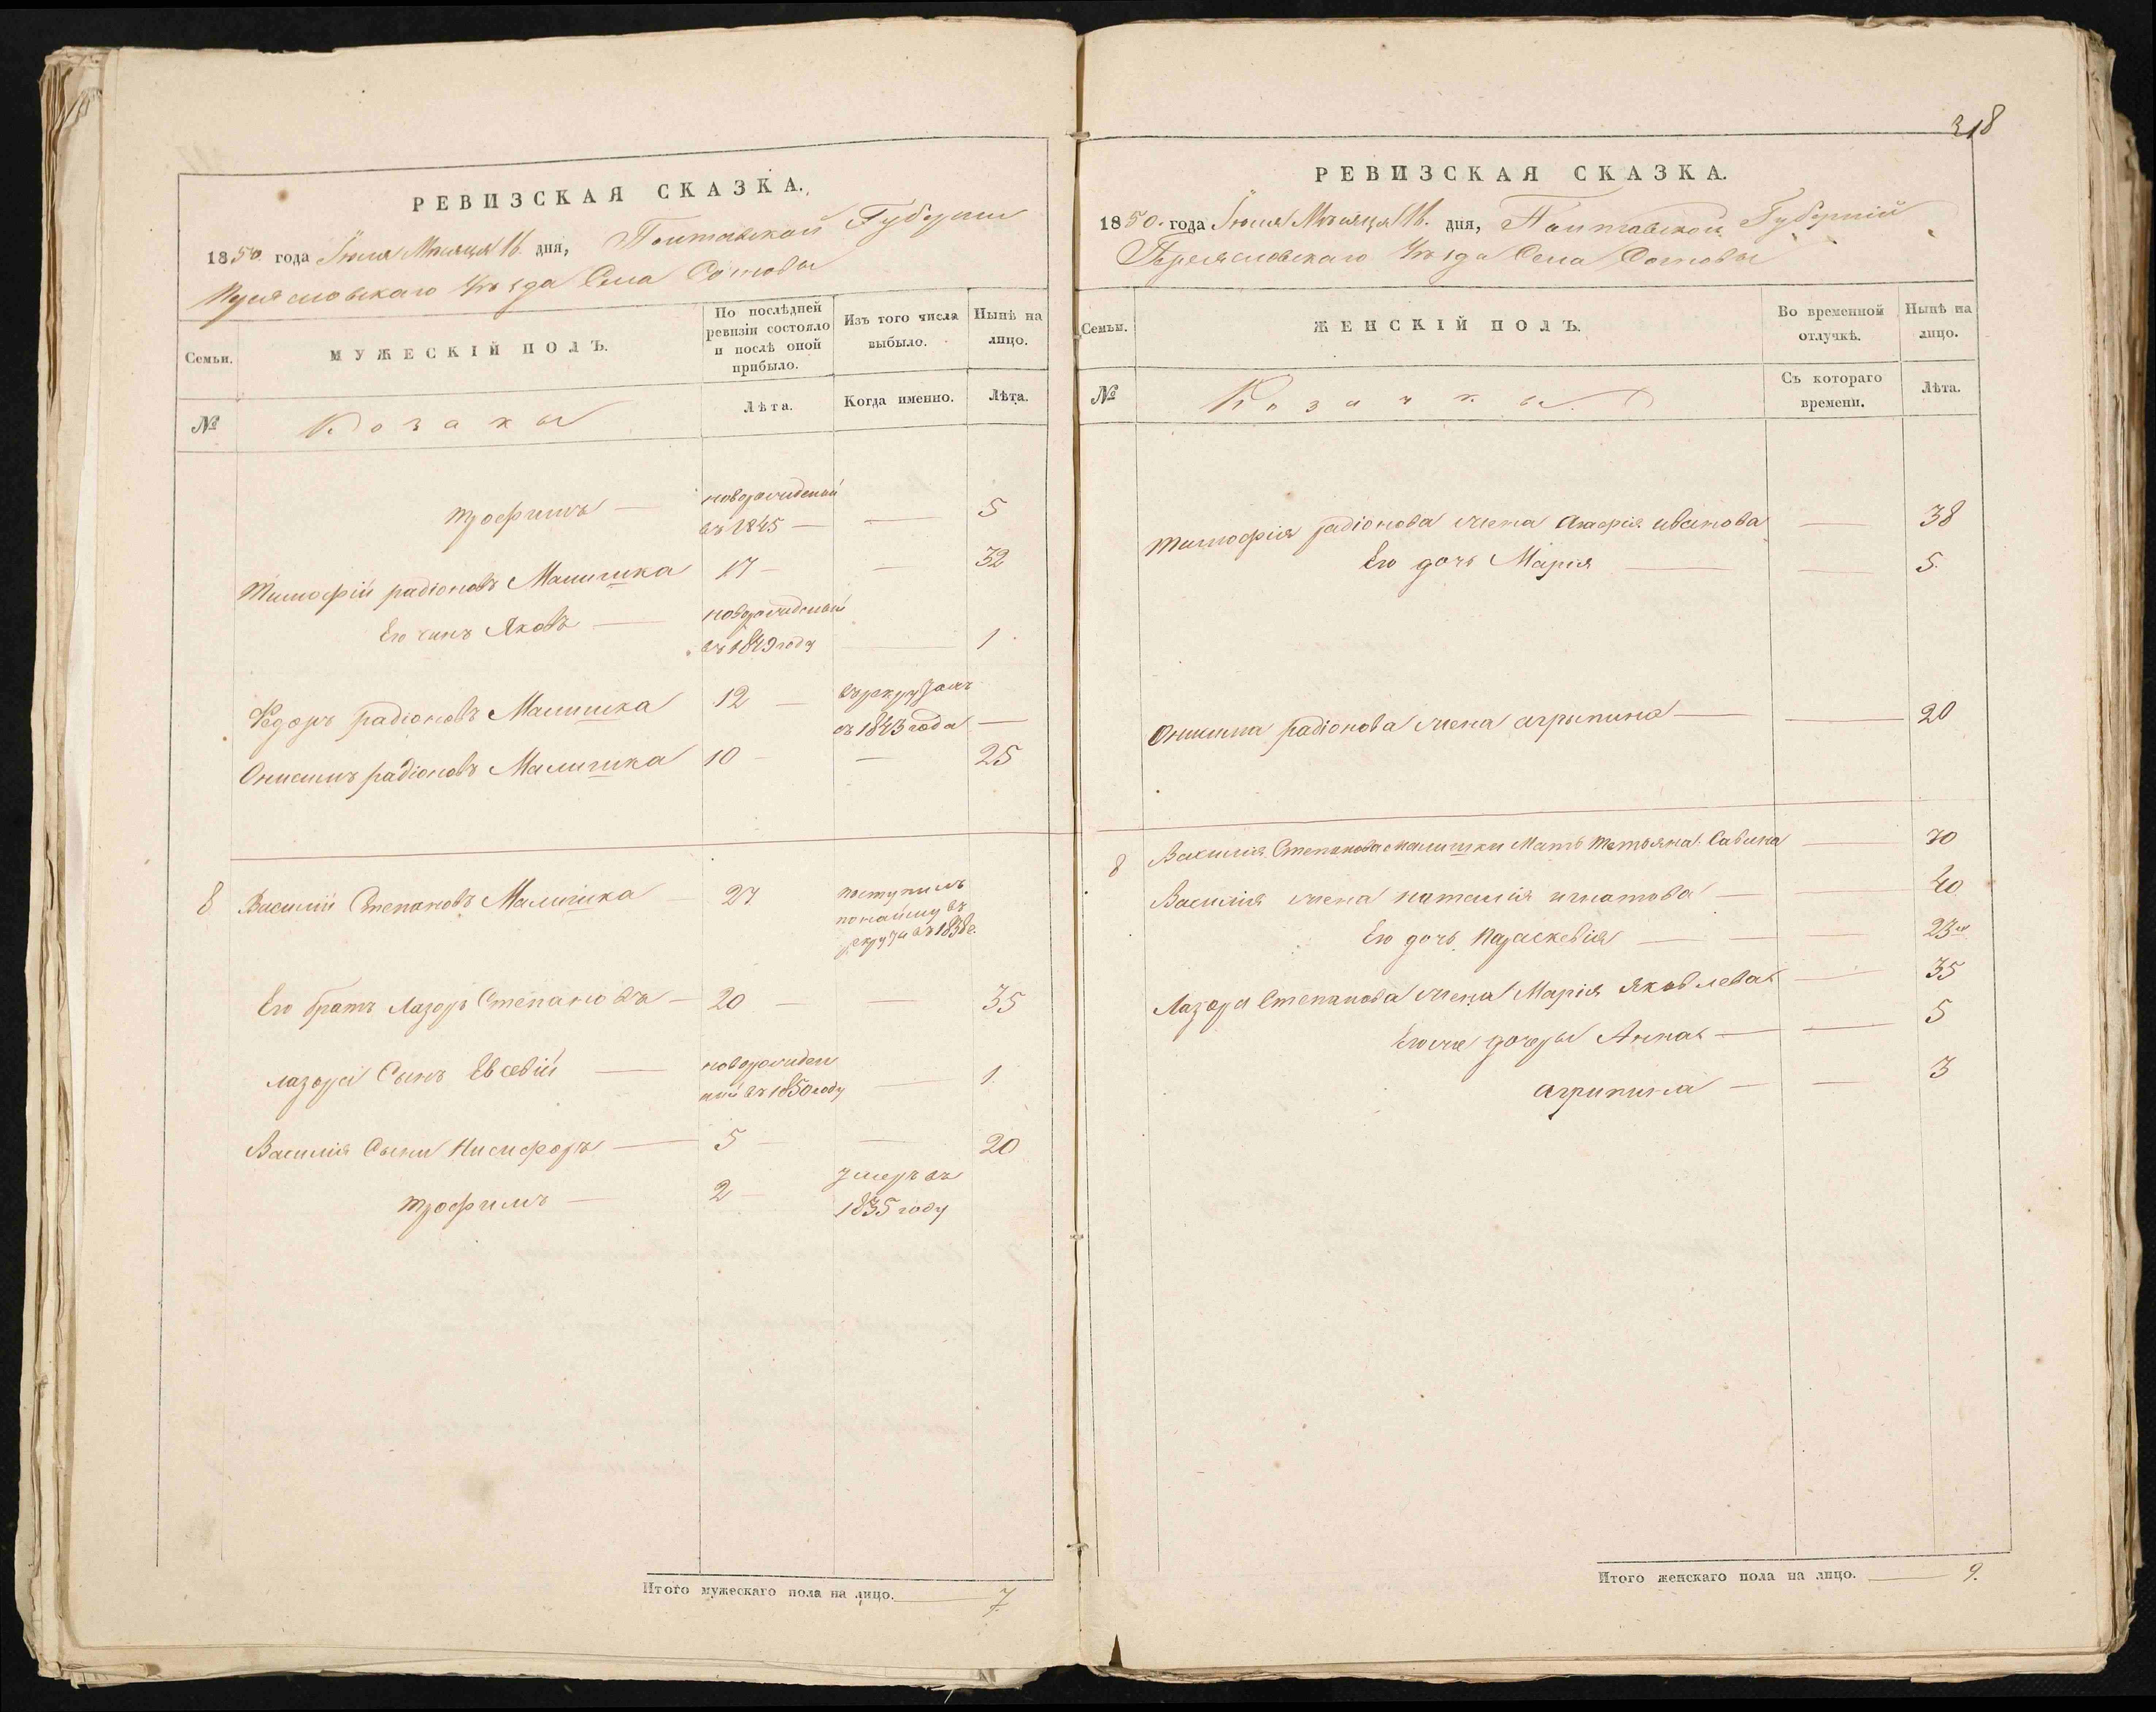 РЕВИЗСКАЯ СКАЗКА.
1850 года Іюля Мѣсяца 16. дня, Полтавской Губерніи
Переясловскаго Уѣзда Села Сомовы
Семьи.
МУЖЕСКІЙ ПОЛЪ.
По послѣдней ревизіи состояло и послѣ оной прибыло.
Изъ того числа выбыло.
Нынѣ на лицо.
№
Козаки
Лѣта.
Когда именно.
Лѣта.
трофимъ — новорожденый
въ 1845 — — 5
Тимофій радіоновъ Малишка 17 — — 32
Его синъ Яковъ — новорожденый
въ 1849 году — 1
Ѳедоръ радіоновъ Малишка 12 —
въ 1843 года —
Онисимъ радіоновъ Малишка 10 — — 25
8 Василій Степановъ Малишка — 27 поступилъ
по найму въ
рекруты въ 1838 г.
Его братъ Лазорь Степановъ — 20 — 35
лазоря Сынъ Евсевій — новорожден
ный въ 1850 году — 1.
Василія Сыни Никифоръ — 5 — — 20
трофимъ — 2 — Умеръ въ
1835 году
Итого мужескаго пола на лицо. — 7.
318
РЕВИЗСКАЯ СКАЗКА.
1850. года Іюля Мѣсяца 16. дня, Полтавской Губерній
Переясловскаго Уѣзда Села Сомовы
Семьи.
ЖЕНСКІЙ ПОЛЪ.
Во временной отлучкѣ.
Нынѣ на лицо.
№
Козачки.
Съ котораго времени.
Лѣта.
тимофія радіонова жена Агафія иванова — 38
Его дочь Марія — — 5.
Онисима радіонова жена агрыпина — — 20
8 Василія Степанова малишки Мать тетьяна Савина — 70
Василія жена наталія игнатова — — 40
Его дочь параскевія — — 23
Лазоря Степанова жена Марія Яковлева — 35
Егоже дочеры Анна — — 5
агрипина — — 3
Итого женскаго пола на лицо. — 9.